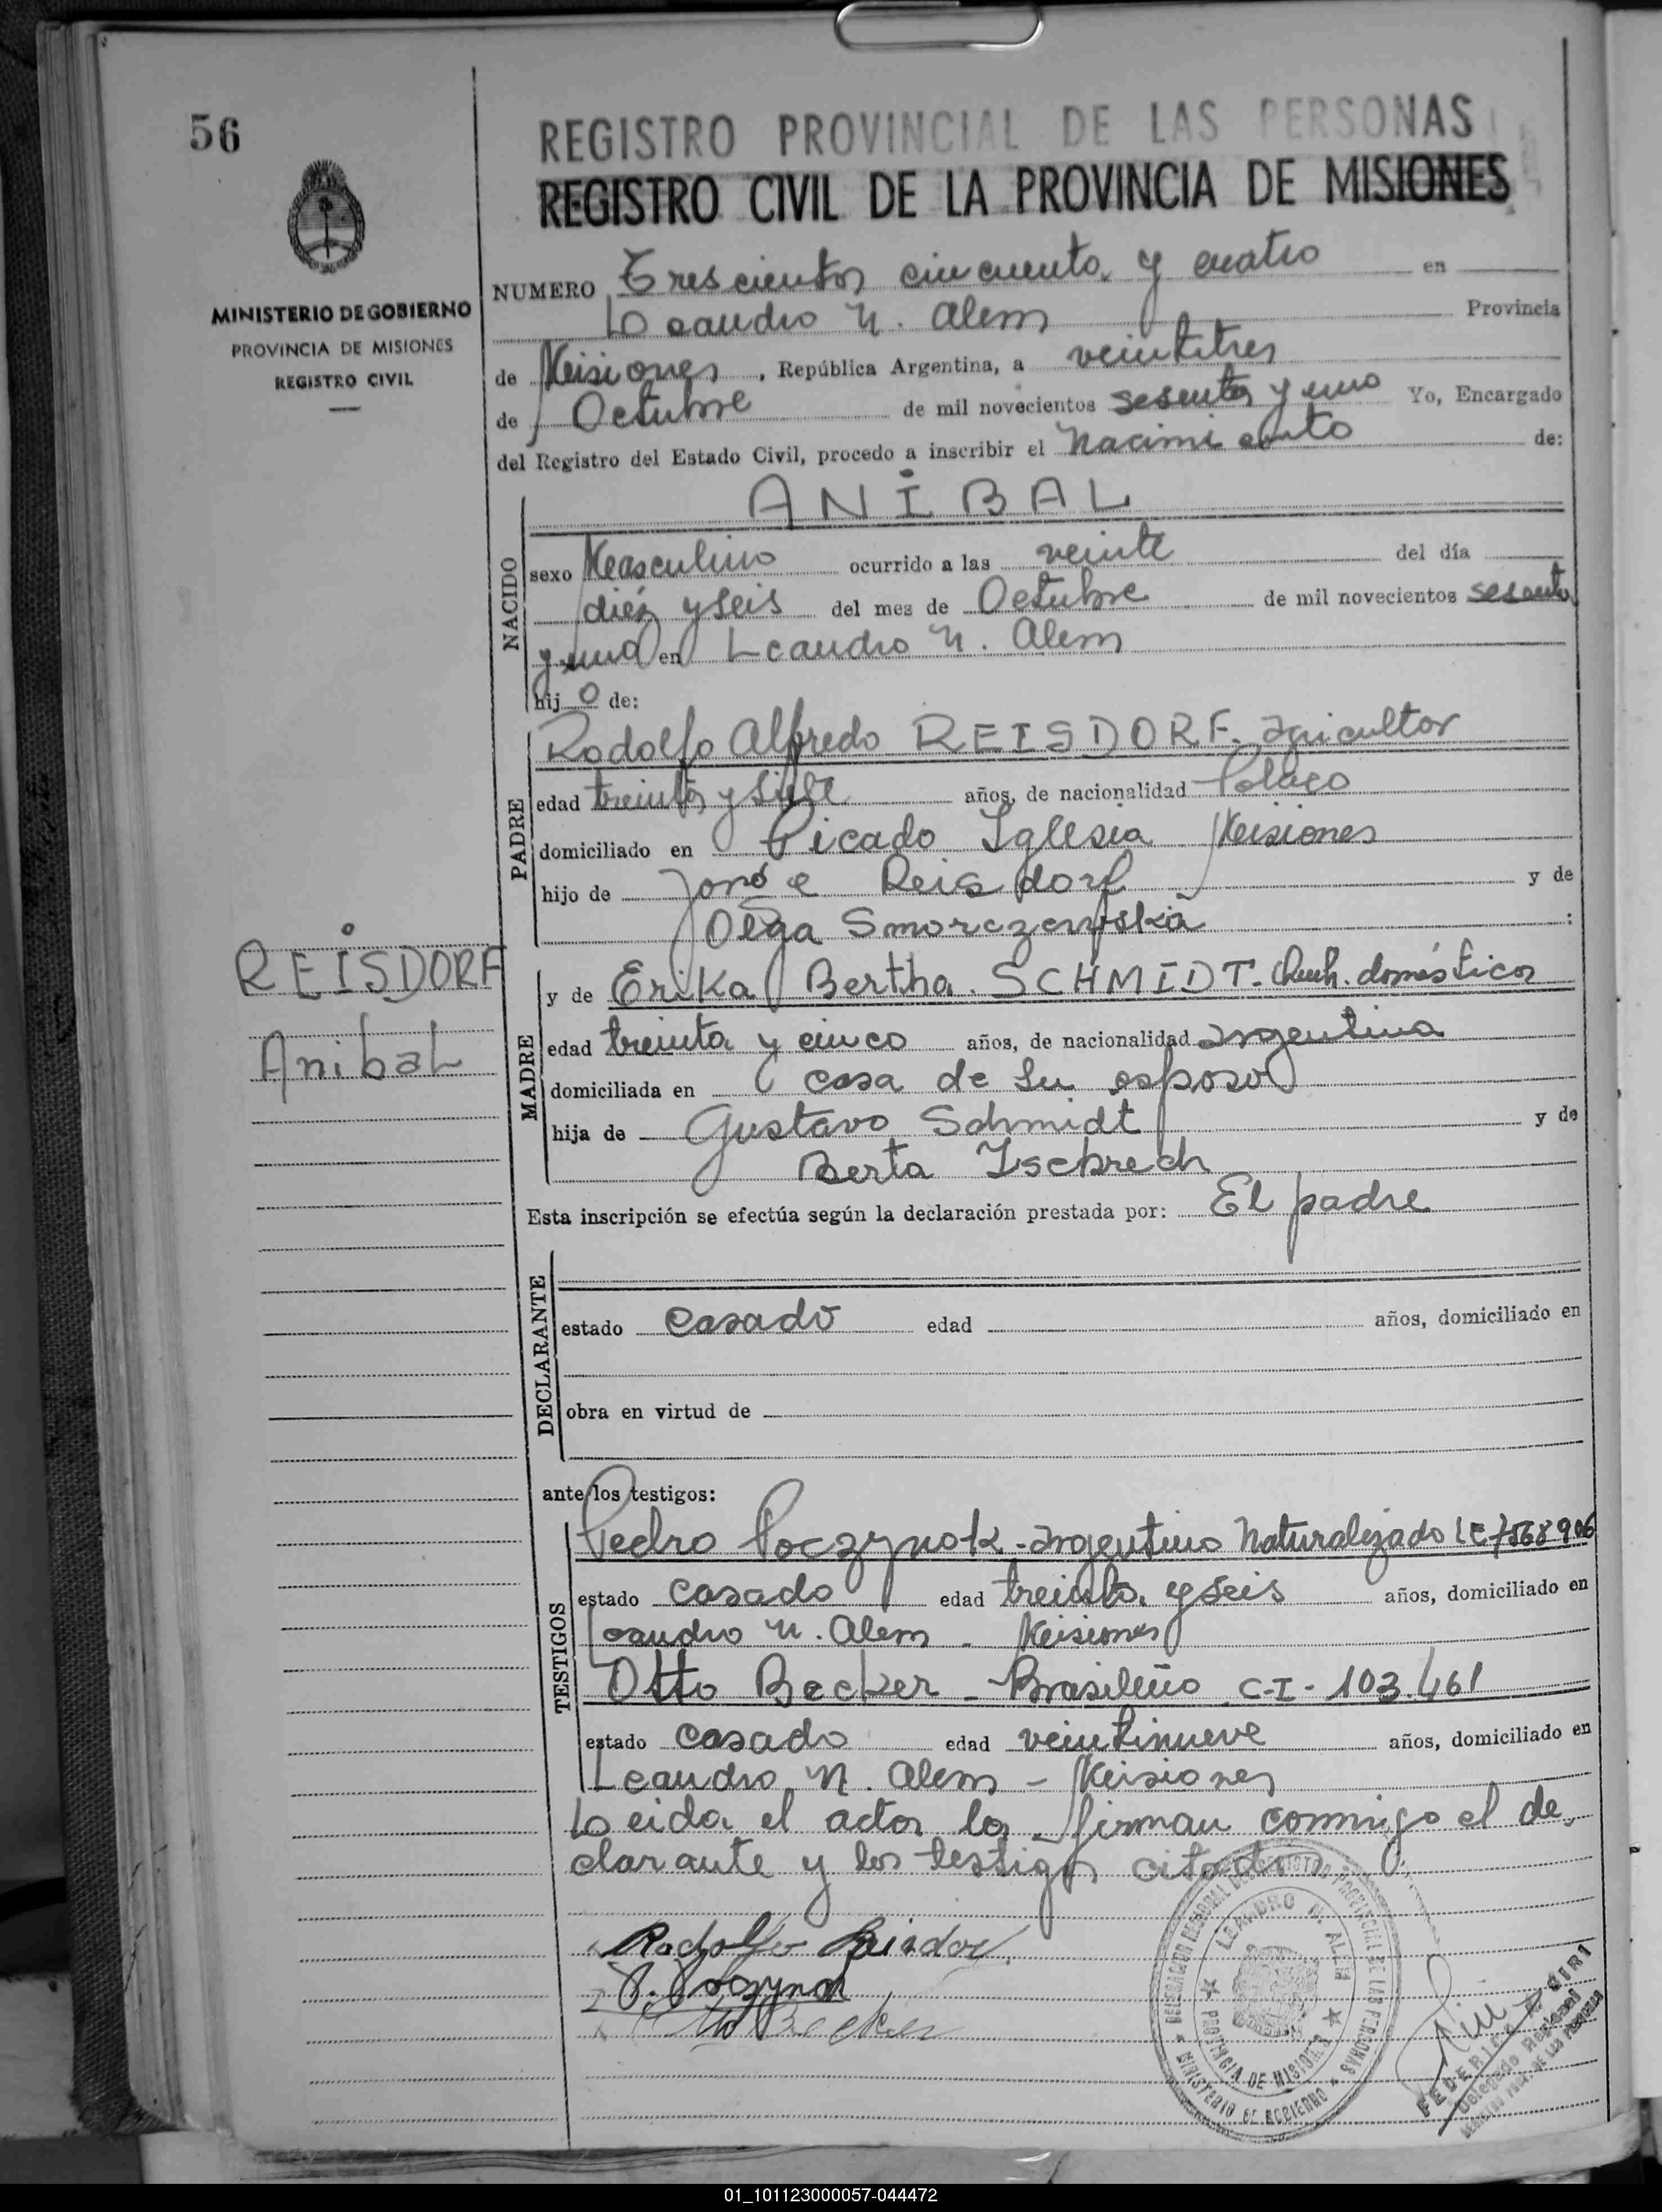 56
REGISTRO PROVINCIAL DE LAS PERSONAS
REGISTRO CIVIL DE LA PROVINCIA DE MISIONES
MINISTERIO DE GOBIERNO
PROVINCIA DE MISIONES
REGISTRO CIVIL
NUMERO Trescientos cincuenta y cuatro en
Leandro N. Alem Provincia
de Misiones, República Argentina, a veintitres
de Octubre de mil novecientos sesenta y uno Yo, Encargado
del Registro del Estado Civil, procedo a inscribir el Nacimiento de:
NACIDO
ANIBAL
sexo Masculino ocurrido a las veinte del día
diez y seis del mes de Octubre de mil novecientos sesenta
y uno en Leandro N. Alem
hijo de:
PADRE
Rodolfo Alfredo REISDORF. agricultor
edad treinta y siete años, de nacionalidad Polaco
domiciliado en Picada Iglesia Misiones
hijo de José Reisdorf y de
Olga Smorczewska :
REISDORF
Anibal
MADRE
y de Erika Bertha. SCHMIDT. Queh. domésticos
edad treinta y cinco años, de nacionalidad argentina
domiciliada en casa de su esposo
hija de Gustavo Schmidt y de
Berta Isebrech
Esta inscripción se efectúa según la declaración prestada por: El padre
DECLARANTE
estado Casado edad años, domiciliado en
obra en virtud de
ante los testigos:
TESTIGOS
Pedro Poczynok - argentino Naturalizado LE 7568906
estado casado edad treinta y seis años, domiciliado en
Leandro N. Alem - Misiones
Otto Becker - Brasileño C-I- 103.461
estado casado edad veintinueve años, domiciliado en
Leandro N. Alem - Misiones
Leida el acta la firman conmigo el de
clarante y los testigos citados
Rodolfo Reisdorf
P. Poczynok
Otto Becker
DELEGADO REGIONAL DEL REGISTRO PROVINCIAL DE LAS PERSONAS
MINISTERIO DE GOBIERNO
LEANDRO N. ALEM
PROVINCIA DE MISIONES
FEDERICO SIRI
Delegado Regional
REGISTRO PROV. DE LAS PERSONAS
01_101123000057-044472